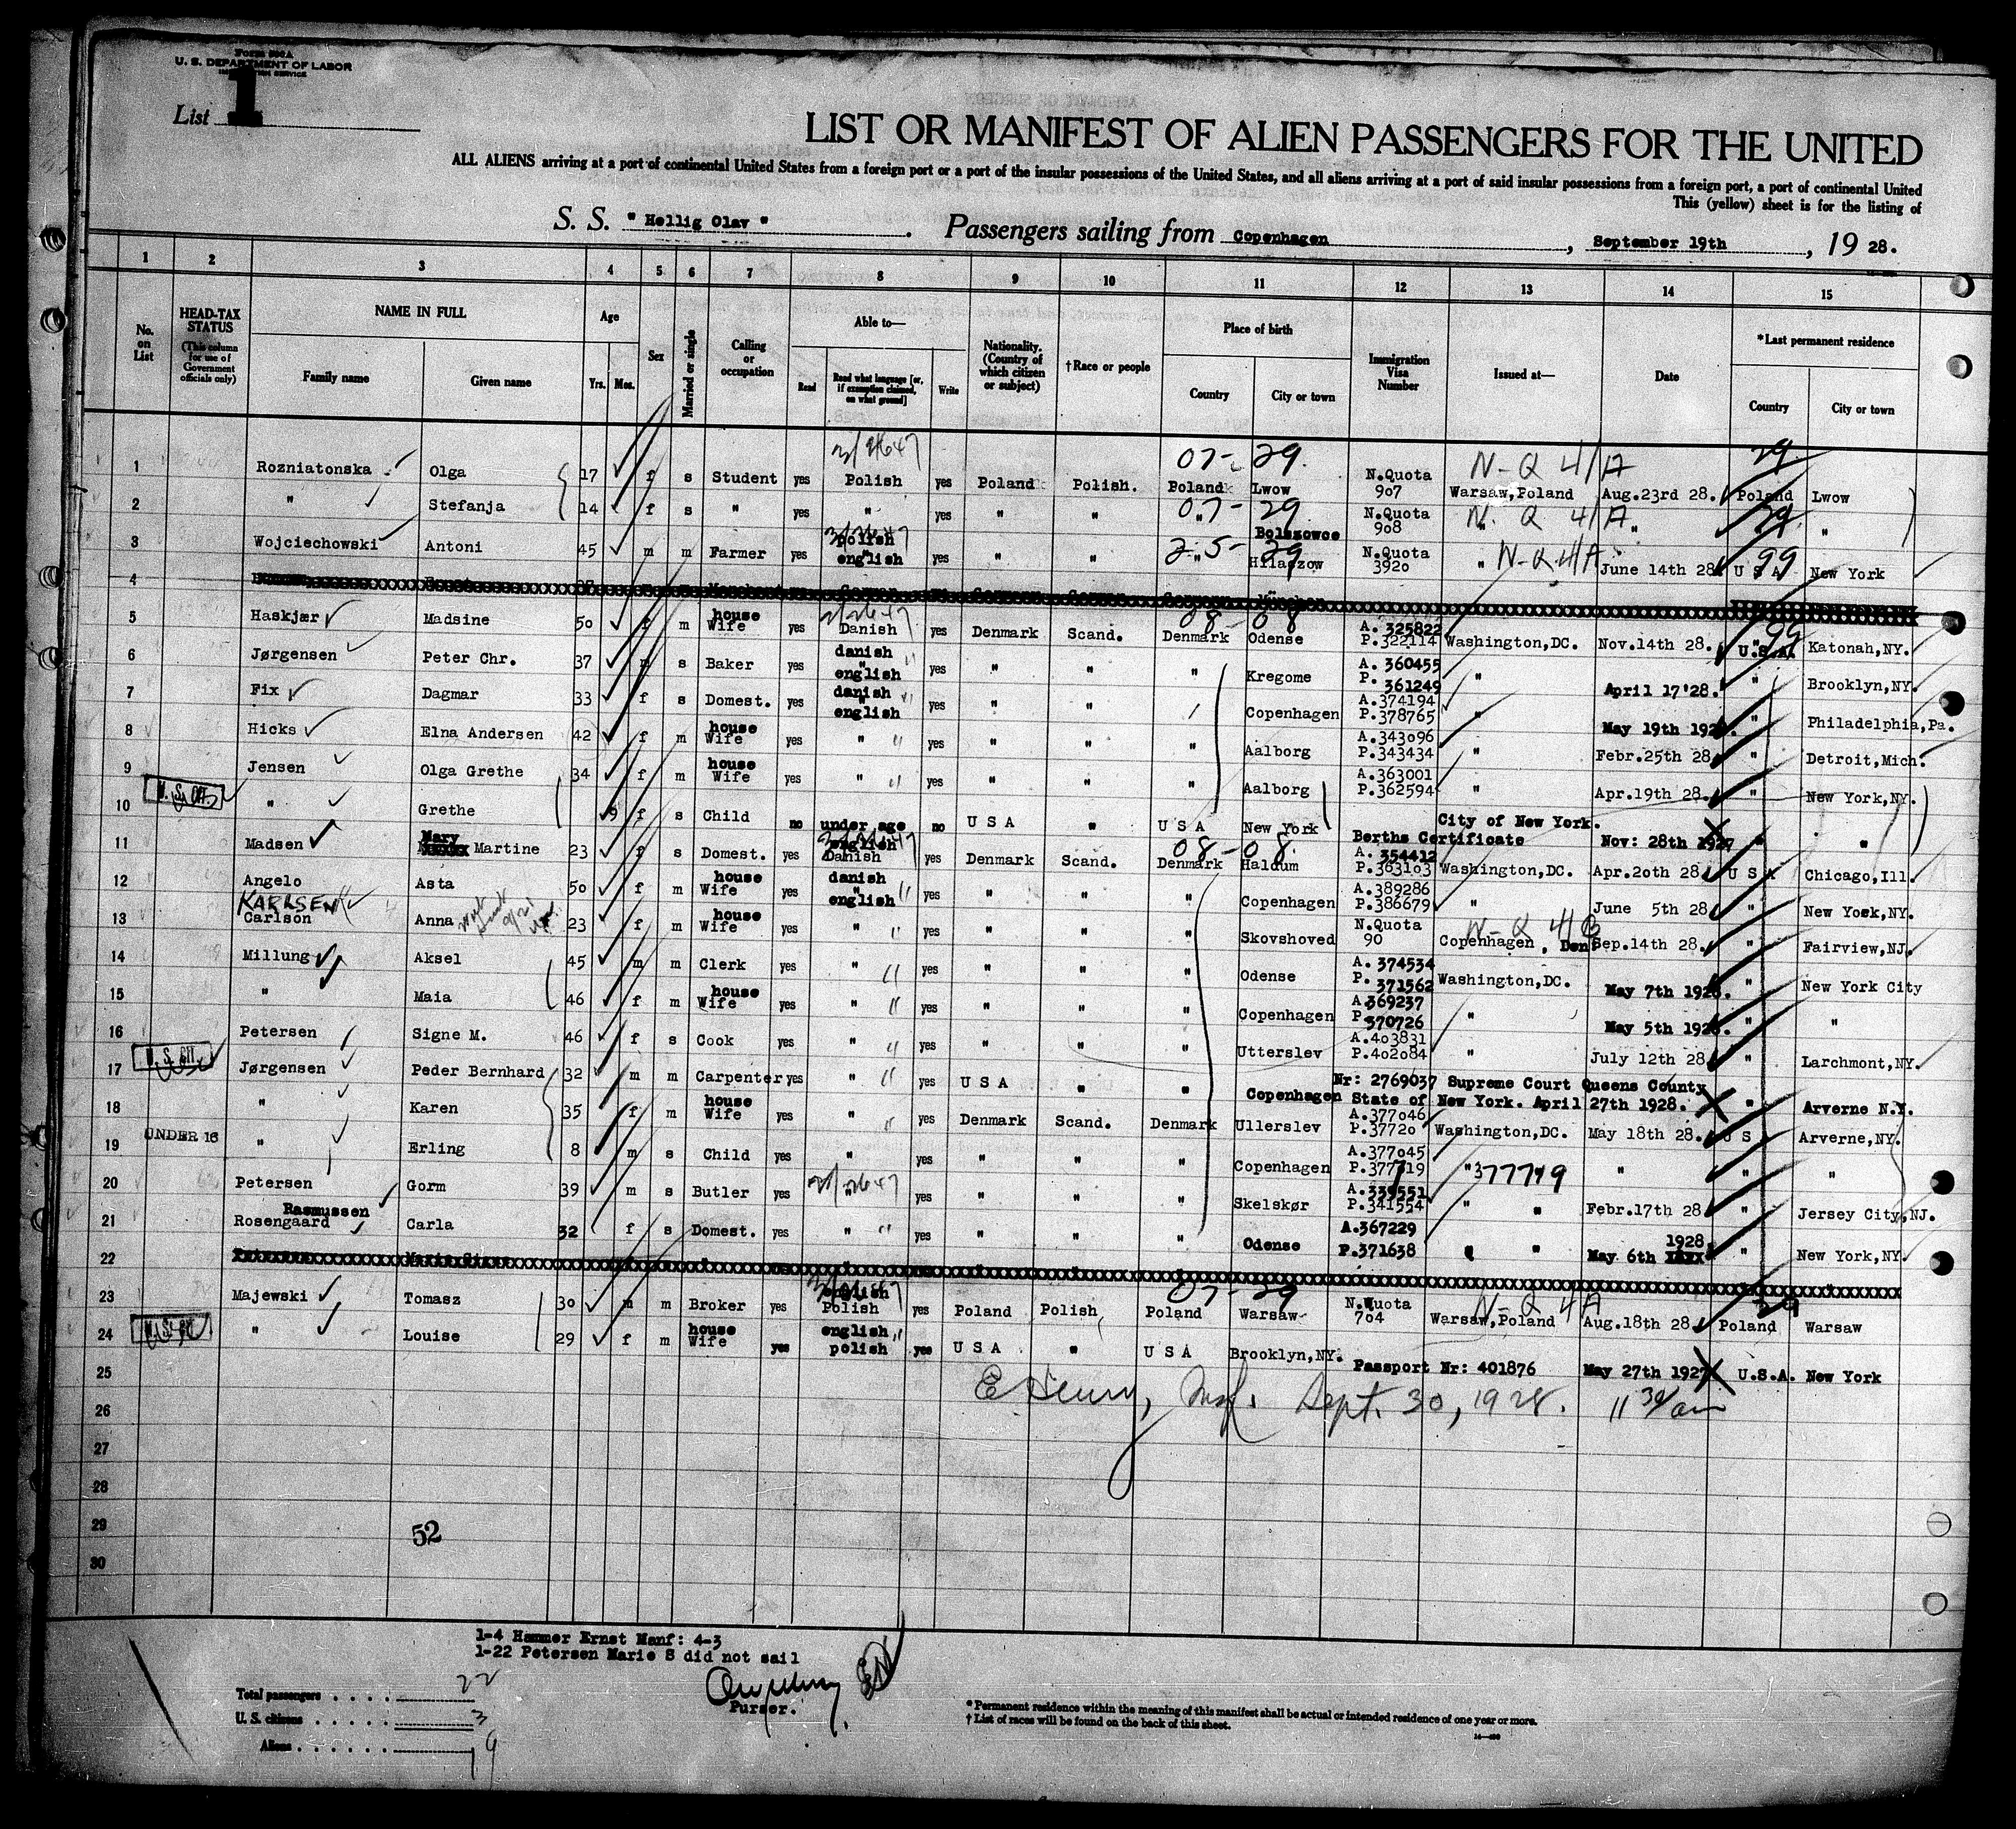 Form 500A
U. S. DEPARTMENT OF LABOR
IMMIGRATION SERVICE
List 1
LIST OR MANIFEST OF ALIEN PASSENGERS FOR THE UNITED
ALL ALIENS arriving at a port of continental United States from a foreign port or a port of the insular possessions of the United States, and all aliens arriving at a port of said insular possessions from a foreign port, a port of continental United
This (yellow) sheet is for the listing of
S. S. "Hellig Olav". Passengers sailing from Copenhagen, September 19th, 19 28.
1 2 3 4 5 6 7 8 9 10 11 12 13 14 15
No. on List
HEAD-TAX STATUS (This column for use of Government officials only)
NAME IN FULL Family name Given name
Age Yrs. Mos.
Sex
Married or single
Calling or occupation
Able to— Read Read what language [or, if exemption claimed, on what ground] Write
Nationality. (Country of which citizen or subject)
†Race or people
Place of birth Country City or town
Immigration Visa Number
Issued at—
Date
*Last permanent residence Country City or town
1 Rozniatonska Olga 17 f s Student yes Polish yes Poland Polish. 07- 29. Poland Lwow N.Quota 907 N-Q 4/A Warsaw,Poland Aug.23rd 28. 29. Poland Lwow
2 " Stefanja 14 f s " yes " yes " " 07- 29 " Bolszowce N.Quota 908 N. Q 4/A " " 29 "
3 Wojciechowski Antoni 45 m m Farmer yes polish english yes " " 25- 29 " Hilaszow N.Quota 3920 " N-Q 4/A June 14th 28 99 U S A New York
4
5 Haskjær Madsine 50 f m house Wife yes Danish yes Denmark Scand. 08- 08 Denmark Odense A. 325822 P.322114 Washington,DC. Nov.14th 28. 99 U.S.A. Katonah,NY.
6 Jørgensen Peter Chr. 37 m s Baker yes danish " english yes " " " Kregome A. 360455 P. 361249 " April 17'28. " Brooklyn,NY.
7 Fix Dagmar 33 f s Domest. yes danish " english yes " " Copenhagen A.374194 P.378765 " May 19th 1928. " Philadelphia,Pa.
8 Hicks Elna Andersen 42 f m house Wife yes " yes " " " Aalborg A.343096 P.343434 " Febr.25th 28 " Detroit,Mich.
9 Jensen Olga Grethe 34 f m house Wife yes " yes " " " Aalborg A.363001 P.362594 " Apr.19th 28. " New York,NY.
U. S. CIT.
10 " Grethe 9 f s Child no under age no U S A " U S A New York City of New York. Berths Certificate Nov: 28th 1927 " "
11 Madsen Mary Martine 23 f s Domest. yes english Danish yes Denmark Scand. 08- 08. Denmark Haldum A. 354412 P.363103 Washington,DC. Apr.20th 28. U S A Chicago,Ill.
12 Angelo Asta 50 f m house Wife yes danish " english yes " " " Copenhagen A.389286 P.386679 " June 5th 28 " New York,NY.
KARLSEN
13 Carlson Anna 23 f m house Wife yes " yes " " " Skovshoved N.Quota 90 N-Q 4/B Copenhagen, Den Sep.14th 28. " Fairview,NJ.
14 Millung Aksel 45 m m Clerk yes " yes " " " Odense A. 374534 P. 371562 Washington,DC. May 7th 1928. " New York City
15 " Maia 46 f m house Wife yes " yes " " " Copenhagen A.369237 P 370726 " May 5th 1928. " "
16 Petersen Signe M. 46 f s Cook yes " yes " " " Utterslev A.403831 P.402084 " July 12th 28. " Larchmont,NY.
U. S. CIT.
17 Jørgensen Peder Bernhard 32 m m Carpenter yes " yes U S A " " Copenhagen Nr: 2769037 Supreme Court Queens County State of New York. April 27th 1928. " Arverne N.Y.
18 " Karen 35 f m house Wife yes " yes Denmark Scand. Denmark Ullerslev A.377046 P.37720 Washington,DC. May 18th 28. U S A Arverne,NY.
UNDER 16
19 " Erling 8 m s Child yes " yes " " " Copenhagen A.377045 P.377719 " 377719 " " "
20 Petersen Gorm 39 m s Butler yes " yes " " " Skelskør A.339551 P.341554 " " Febr.17th 28 " Jersey City,NJ.
21 Rasmussen Rosengaard Carla 32 f s Domest. yes " yes " " " Odense A.367229 P.371638 " " 1928. May 6th " New York,NY.
22
23 Majewski Tomasz 30 m m Broker yes english Polish yes Poland Polish 07- 29 Poland Warsaw N.Quota 704 N-Q 4A Warsaw,Poland Aug.18th 28. 29 Poland Warsaw
U. S. CIT.
24 " Louise 29 f m house Wife yes english polish yes U S A " U S A Brooklyn,NY. Passport Nr: 401876 May 27th 1927 U.S.A. New York
25
26
27
28
29
30
E Henry, Insp. Sept. 30, 1928. 11 30/am
52
1-4 Hammer Ernst Manf: 4-3
1-22 Petersen Marie S did not sail
Purser.
Total passengers . . . . 22
U. S. citizens . . . . . 3
Aliens . . . . . . 19
*Permanent residence within the meaning of this manifest shall be actual or intended residence of one year or more.
†List of races will be found on the back of this sheet.